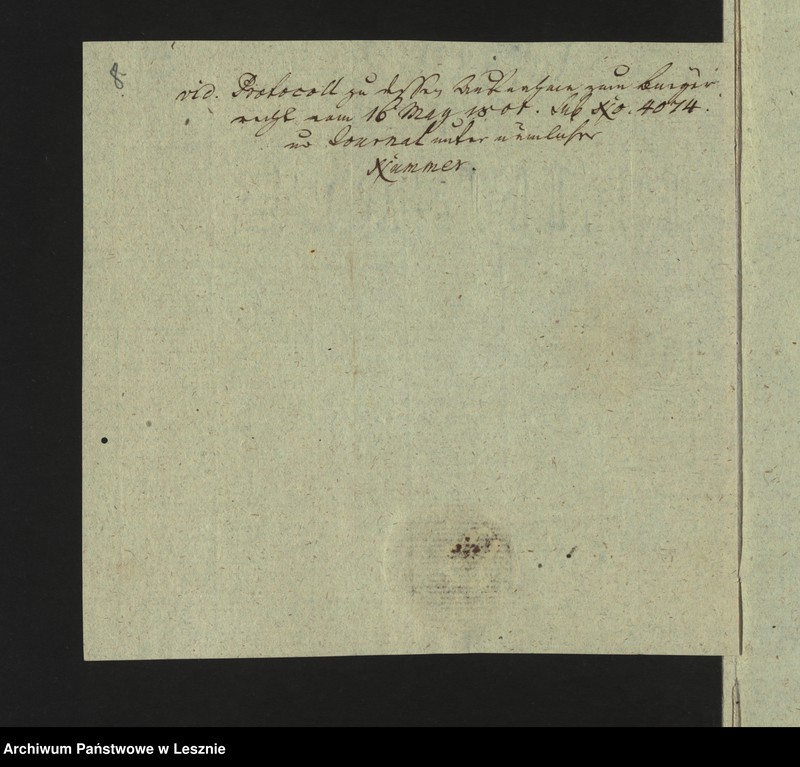 8
vid. Protocoll zu dessen Aufnahme zum Bürger
recht vom 16 May 1801. sub No. 4074.
Journal unter nämlicher
Nummer.
Archiwum Państwowe w Lesznie